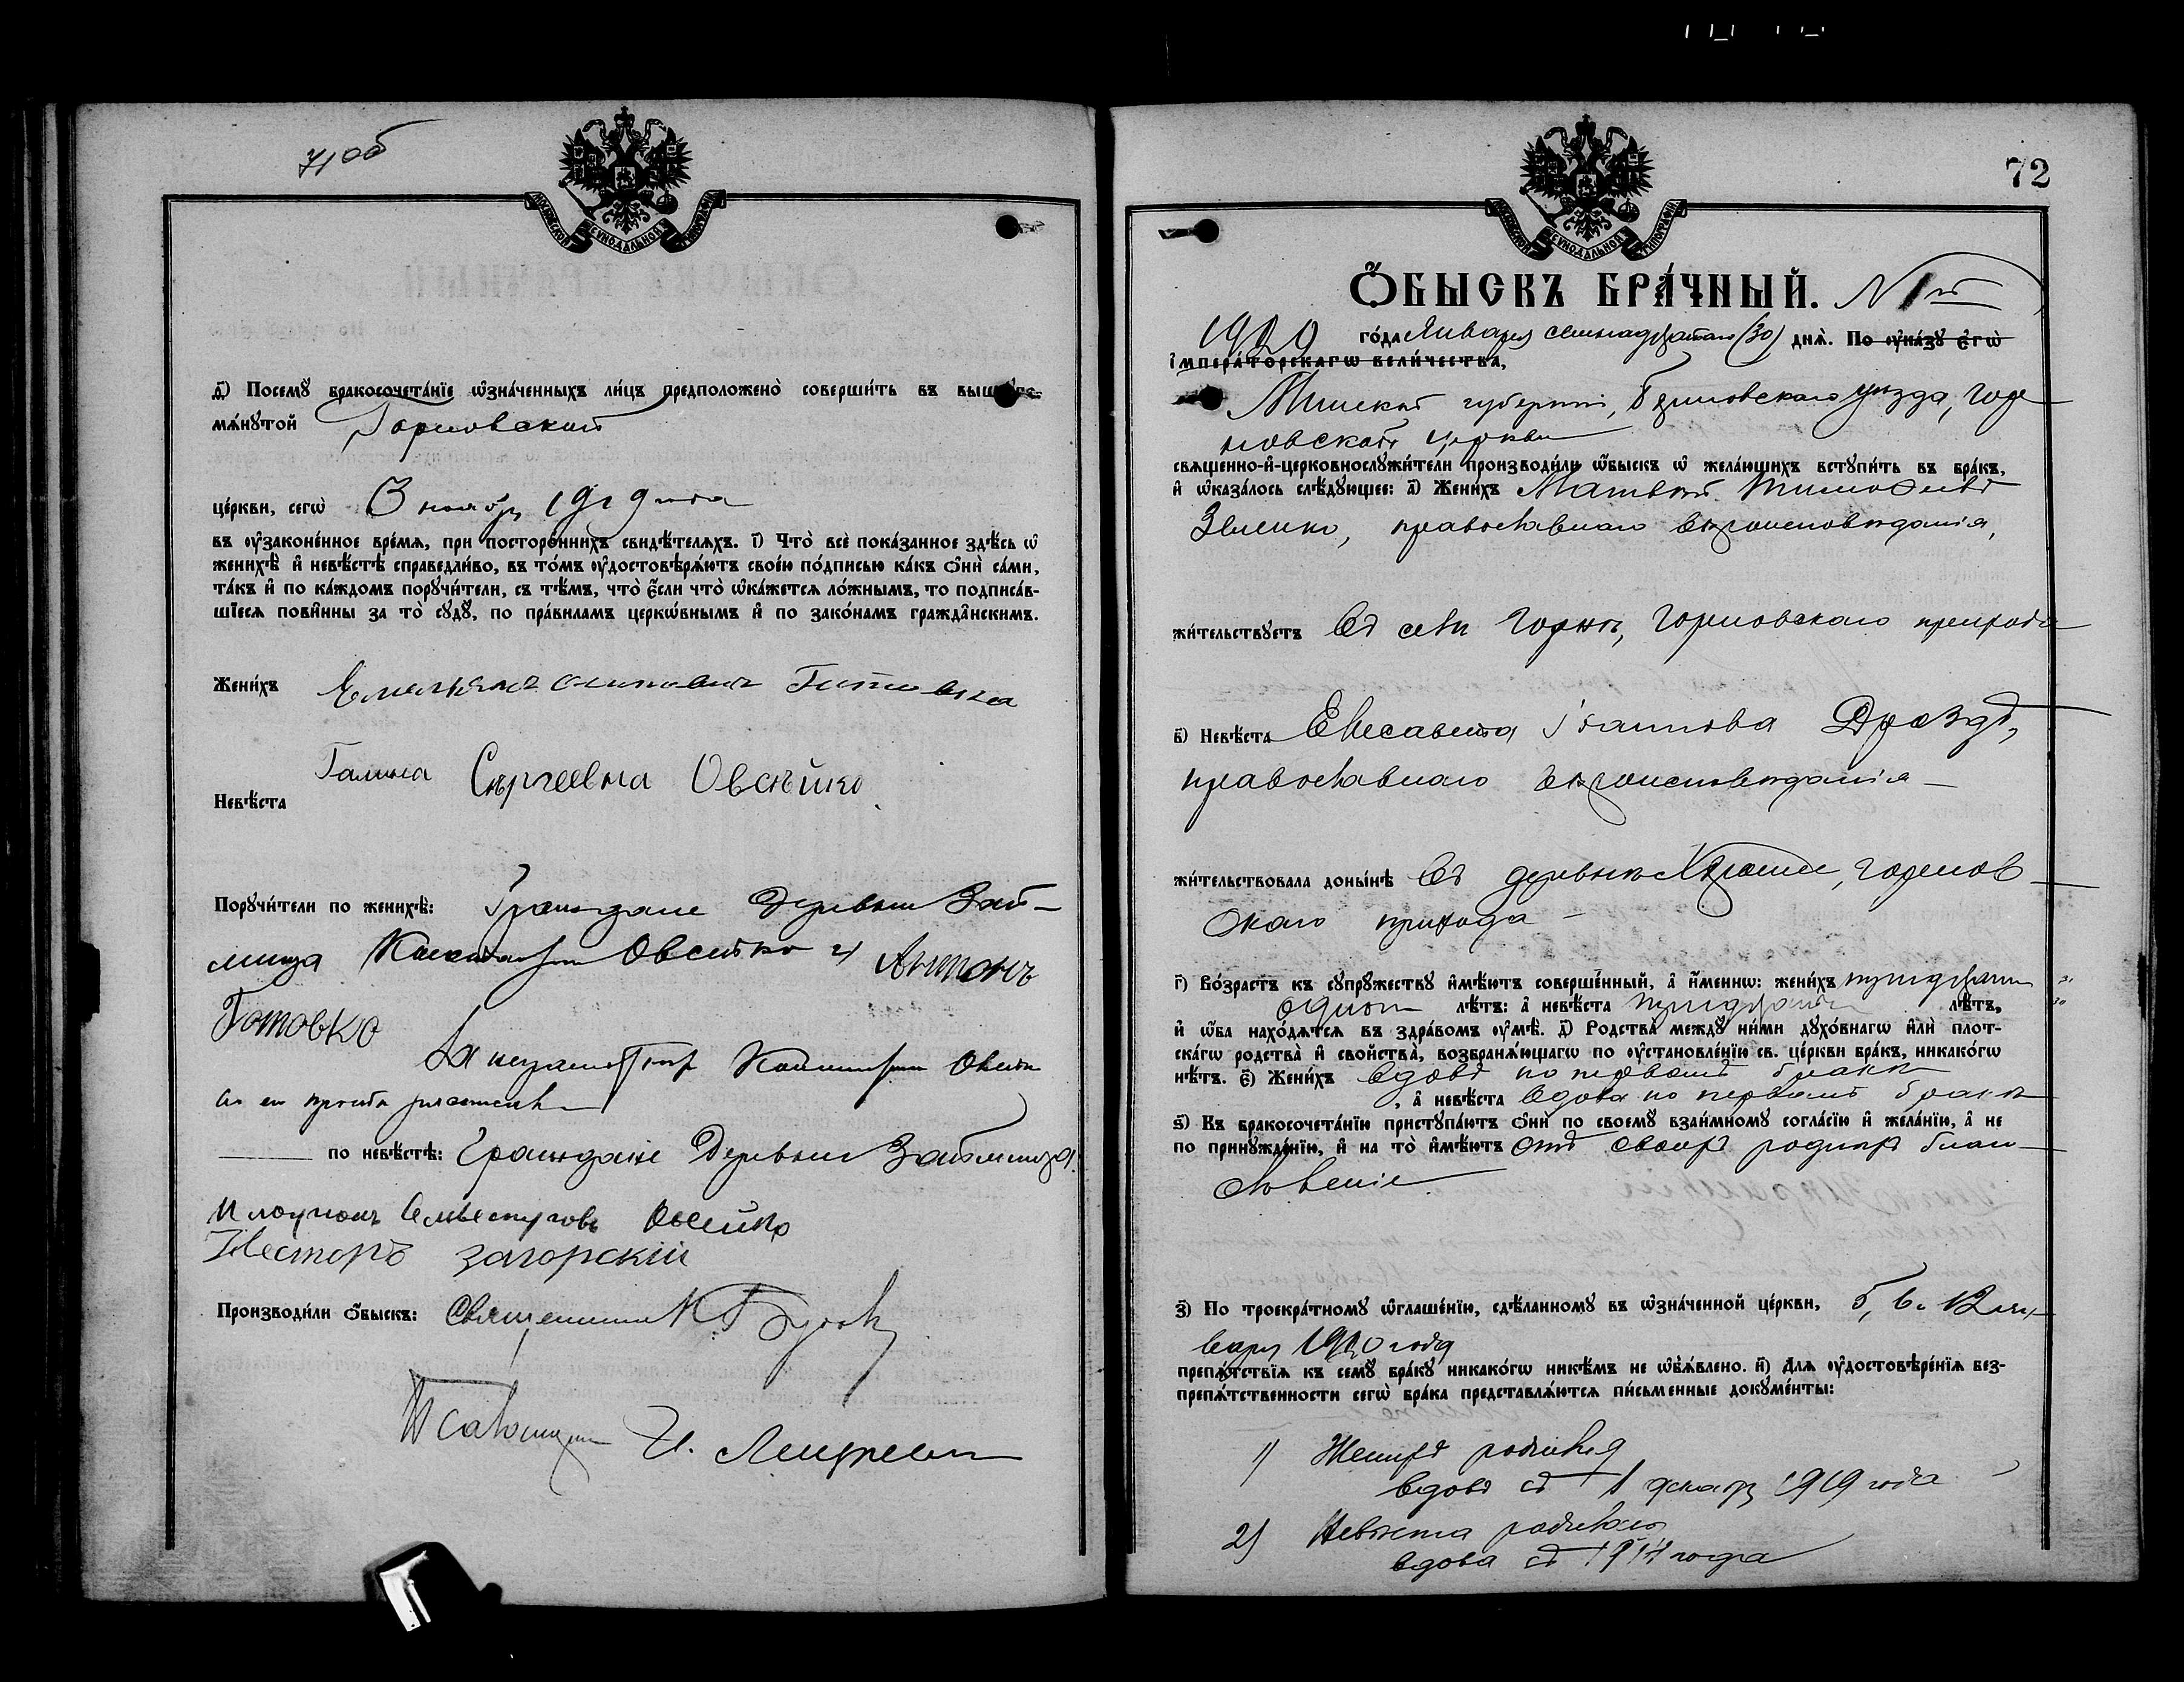 71об
МОСКОВСКОЙ СѴНОДАЛЬНОЙ ТИПОГРАФІИ
ѳ҃) Посемꙋ бракосочета́нїе ѡ҆зна́ченныхъ ли́цъ предположено̀ соверши́ть въ вышеꙋпо-
мѧ́нꙋтой Горновской
це́ркви, сегѡ̀ 3 ноября 1919 года
въ ᲂу҆зако́ненное вре́мѧ, при посторо́ннихъ свидѣ́телѧхъ. і҃) Что̀ всѐ пока́занное здѣ́сь ѡ҆
женихѣ̀ и҆ невѣ́стѣ справедли́во, въ то́мъ ᲂу҆достовѣрѧ́ютъ свое́ю по́дписью ка́къ ѻ҆нѝ са́ми,
та́къ и҆ по ка́ждомъ порꙋчи́тели, съ тѣ́мъ, что̀ є҆́сли что̀ ѡ҆ка́жетсѧ ло́жнымъ, то подписа́в-
шїесѧ пови́нны за то̀ сꙋдꙋ̀, по пра́виламъ церкѡ́внымъ и҆ по зако́намъ гражда́нскимъ.
Жени́хъ
Невѣ́ста Галина Сергеевна Овсѣйко
Порꙋчи́тели по женихѣ̀: Граждане деревни Заб-
Овсейко и Антонъ
Готовко
Овсейко
по невѣ́стѣ: Граждане деревни
Овсейко
Несторъ Загорскій
Производи́ли ѻ҆́быскъ: Священникъ
72
МОСКОВСКОЙ СѴНОДАЛЬНОЙ ТИПОГРАФІИ
Ѻ҆́БЫСКЪ БРА́ЧНЫЙ. N 1й
1920 го́да Января семнадцатаго (30) днѧ̀. По ᲂу҆ка́зꙋ є҆гѡ̀
і҆мпера́торскагѡ вели́чества,
Минской губерніи, уѣзда, Гор-
новской церкви
свѧщенно-и҆-церковнослꙋжи́тели производи́ли ѡ҆́быскъ ѡ҆ жела́ющихъ встꙋпи́ть въ бра́къ,
и҆ ѡ҆каза́лось слѣ́дꙋющее: а҃) Жени́хъ Матвѣй Тимофеевъ
православнаго вѣроисповѣданія,
жи́тельствꙋетъ въ селѣ Горкахъ, Горновскаго прихода
в҃) Невѣ́ста Елисавета Іоаннова Дроздъ,
православнаго вѣроисповѣданія
жи́тельствовала доны́нѣ въ деревнѣ Горнов-
скаго прихода
г҃) Во́зрастъ къ сꙋпрꙋ́жествꙋ и҆мѣ́ютъ соверше́нный, а҆ и҆́меннѡ: жени́хъ тридцати 31
одного лѣ́тъ: а҆ невѣ́ста тридцати лѣ́тъ, 30
и҆ ѡ҆́ба нахо́дѧтсѧ въ здра́вомъ ᲂу҆мѣ̀. д҃) Родства̀ междꙋ̀ ни́ми дꙋхо́внагѡ и҆лѝ плот-
ска́гѡ родства̀ и҆ свойства̀, возбранѧ́ющагѡ по ᲂу҆становле́нїю св. це́ркви бра́къ, никако́гѡ
нѣ́тъ. є҃) Жени́хъ вдовъ по первомъ бракѣ
, а҆ невѣ́ста вдова по первомъ бракѣ
ѕ҃) Къ бракосочета́нїю пристꙋпа́ютъ ѻ҆нѝ по своемꙋ̀ взаи́мномꙋ согла́сїю и҆ жела́нїю, а҆ не
по принꙋжде́нїю, и҆ на то̀ и҆мѣ́ютъ отъ своихъ родныхъ благо-
словеніе
з҃) По троекра́тномꙋ ѡ҆глаше́нїю, сдѣ́ланномꙋ въ ѡ҆зна́ченной це́ркви, 5, 6 и 12 ян-
варя 1920 года
препѧ́тствїѧ къ семꙋ̀ бра́кꙋ никако́гѡ никѣ́мъ не ѡ҆б̾ѧ́влено. и҃) Для ᲂу҆достовѣре́нїѧ без-
препѧ́тственности сегѡ̀ бра́ка представлѧ́ютсѧ пи́сьменные докꙋме́нты:
1) Женихъ родился
вдовъ съ 1 декабря 1919 года
2) Невѣста родилась
вдова съ 1914 года